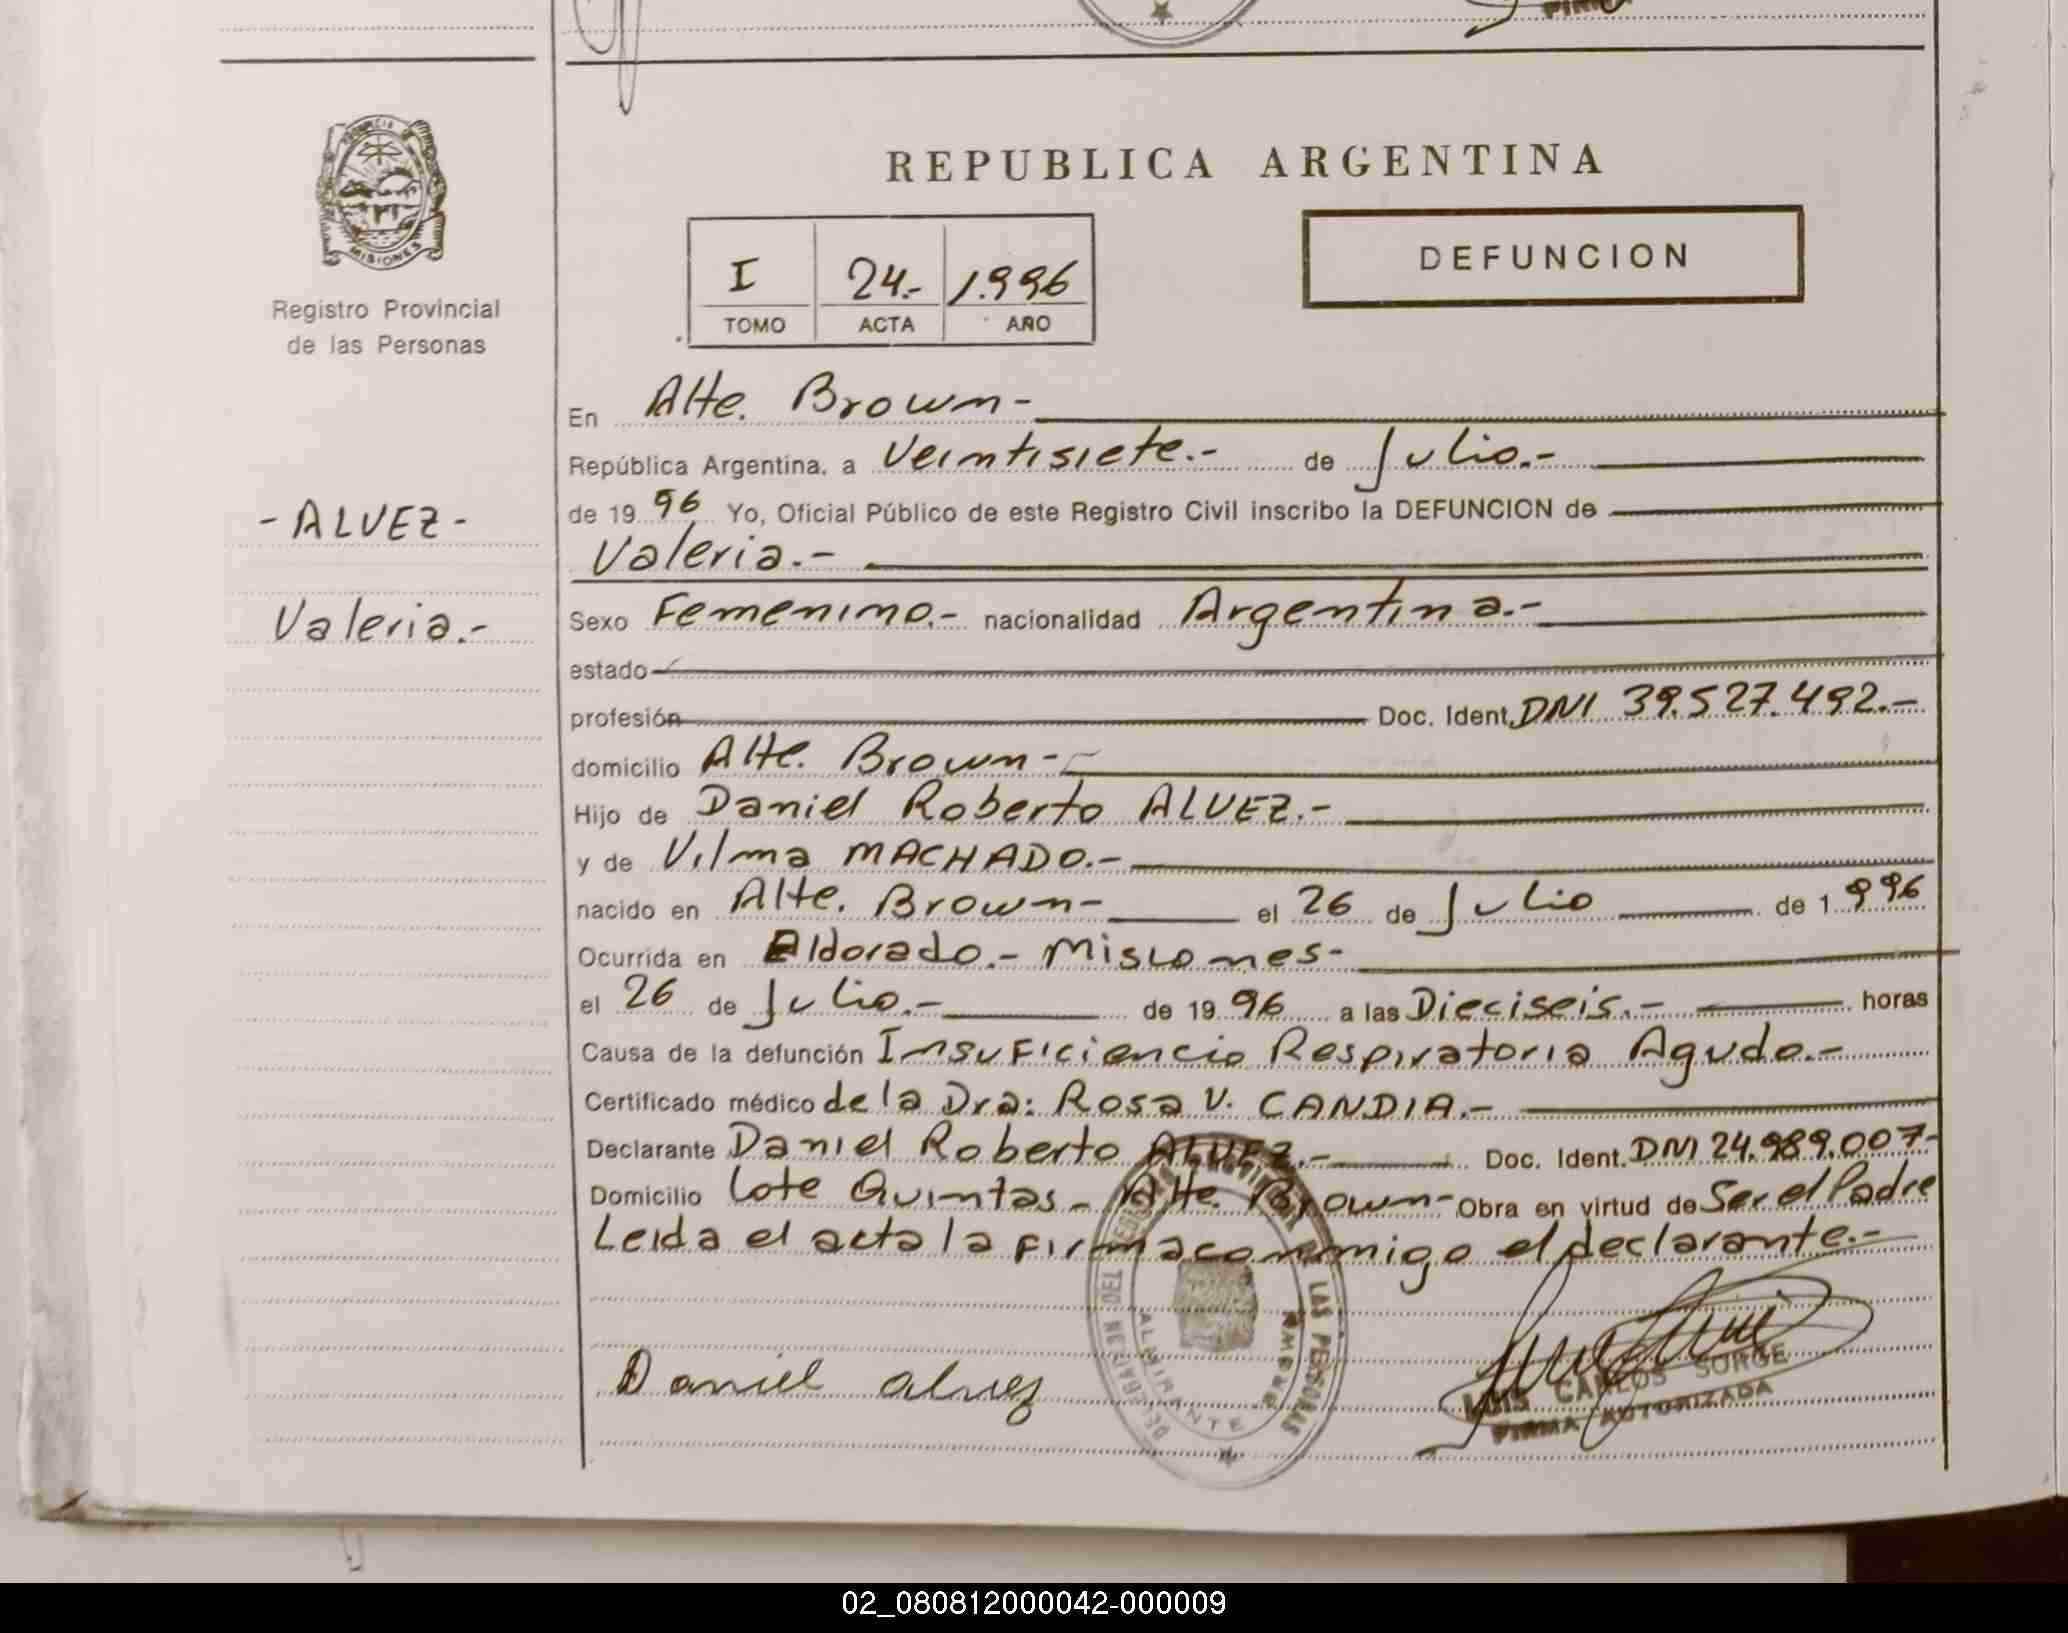 PROVINCIA DE
MISIONES
Registro Provincial
de las Personas
- ALVEZ -
Valeria.-
REPUBLICA ARGENTINA
I 24.- 1.996
TOMO ACTA AÑO
DEFUNCION
En Alte. Brown-
República Argentina, a Veintisiete.- de Julio.-
de 19 96 Yo, Oficial Público de este Registro Civil inscribo la DEFUNCION de
Valeria.-
Sexo Femenino.- nacionalidad Argentina.-
estado
profesión Doc. Ident. DNI 39.527.492.-
domicilio Alte. Brown-
Hijo de Daniel Roberto ALVEZ.-
y de Vilma MACHADO.-
nacido en Alte. Brown- el 26 de Julio de 1.996
Ocurrida en Eldorado.- Misiones-
el 26 de Julio.- de 19 96 a las Dieciseis.- horas
Causa de la defunción Insuficiencia Respiratoria Aguda.-
Certificado médico de la Dra: Rosa V. CANDIA.-
Declarante Daniel Roberto ALVEZ.- Doc. Ident. DNI 24.989.007-
Domicilio Lote Quintas - Alte. Brown- Obra en virtud de Ser el Padre
Leida el acta la firma conmigo el declarante.-
DELEGACION DEL LAS PERSONAS
ALMIRANTE BROWN
Daniel Alvez
LUIS CARLOS SORGE
FIRMA AUTORIZADA
02_080812000042-000009